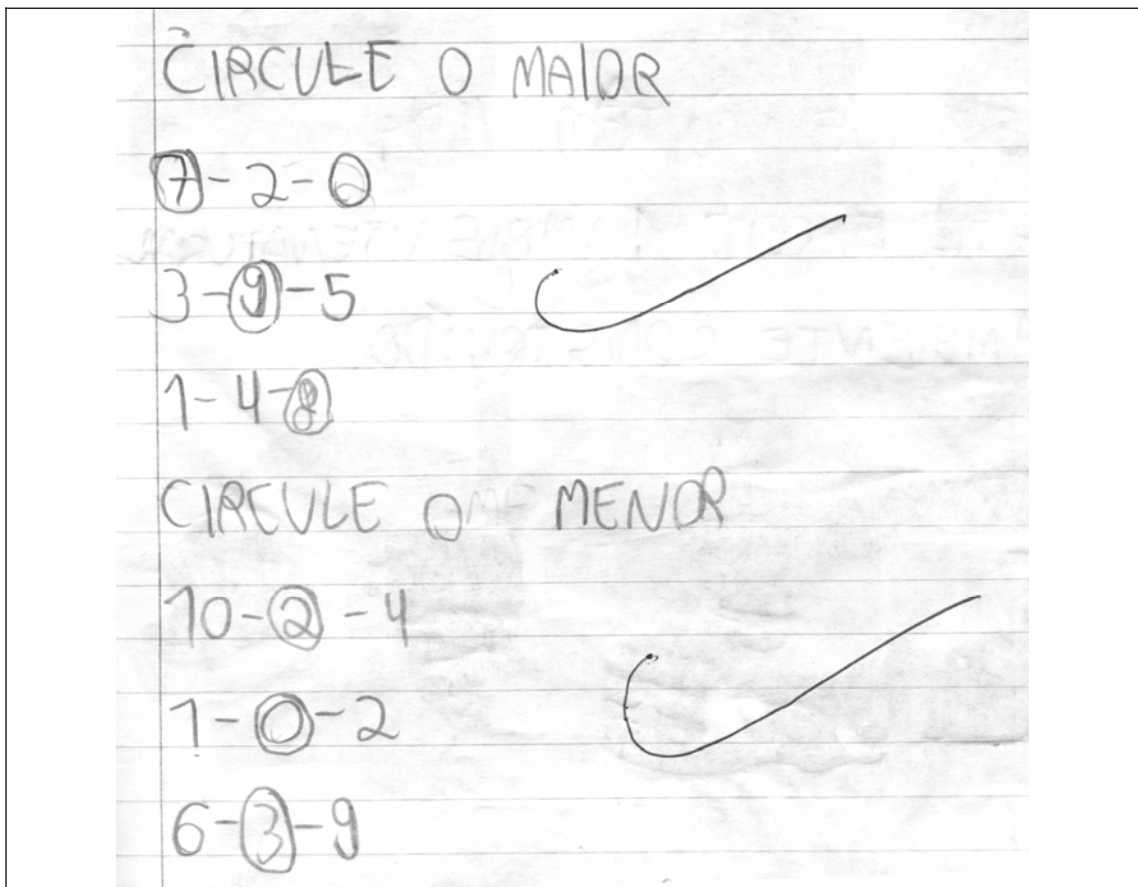 CIRCULE O MAIOR
7-2-0
3-9-5
1-4-8
CIRCULE O MENOR
10-2-4
1-0-2
6-3-9